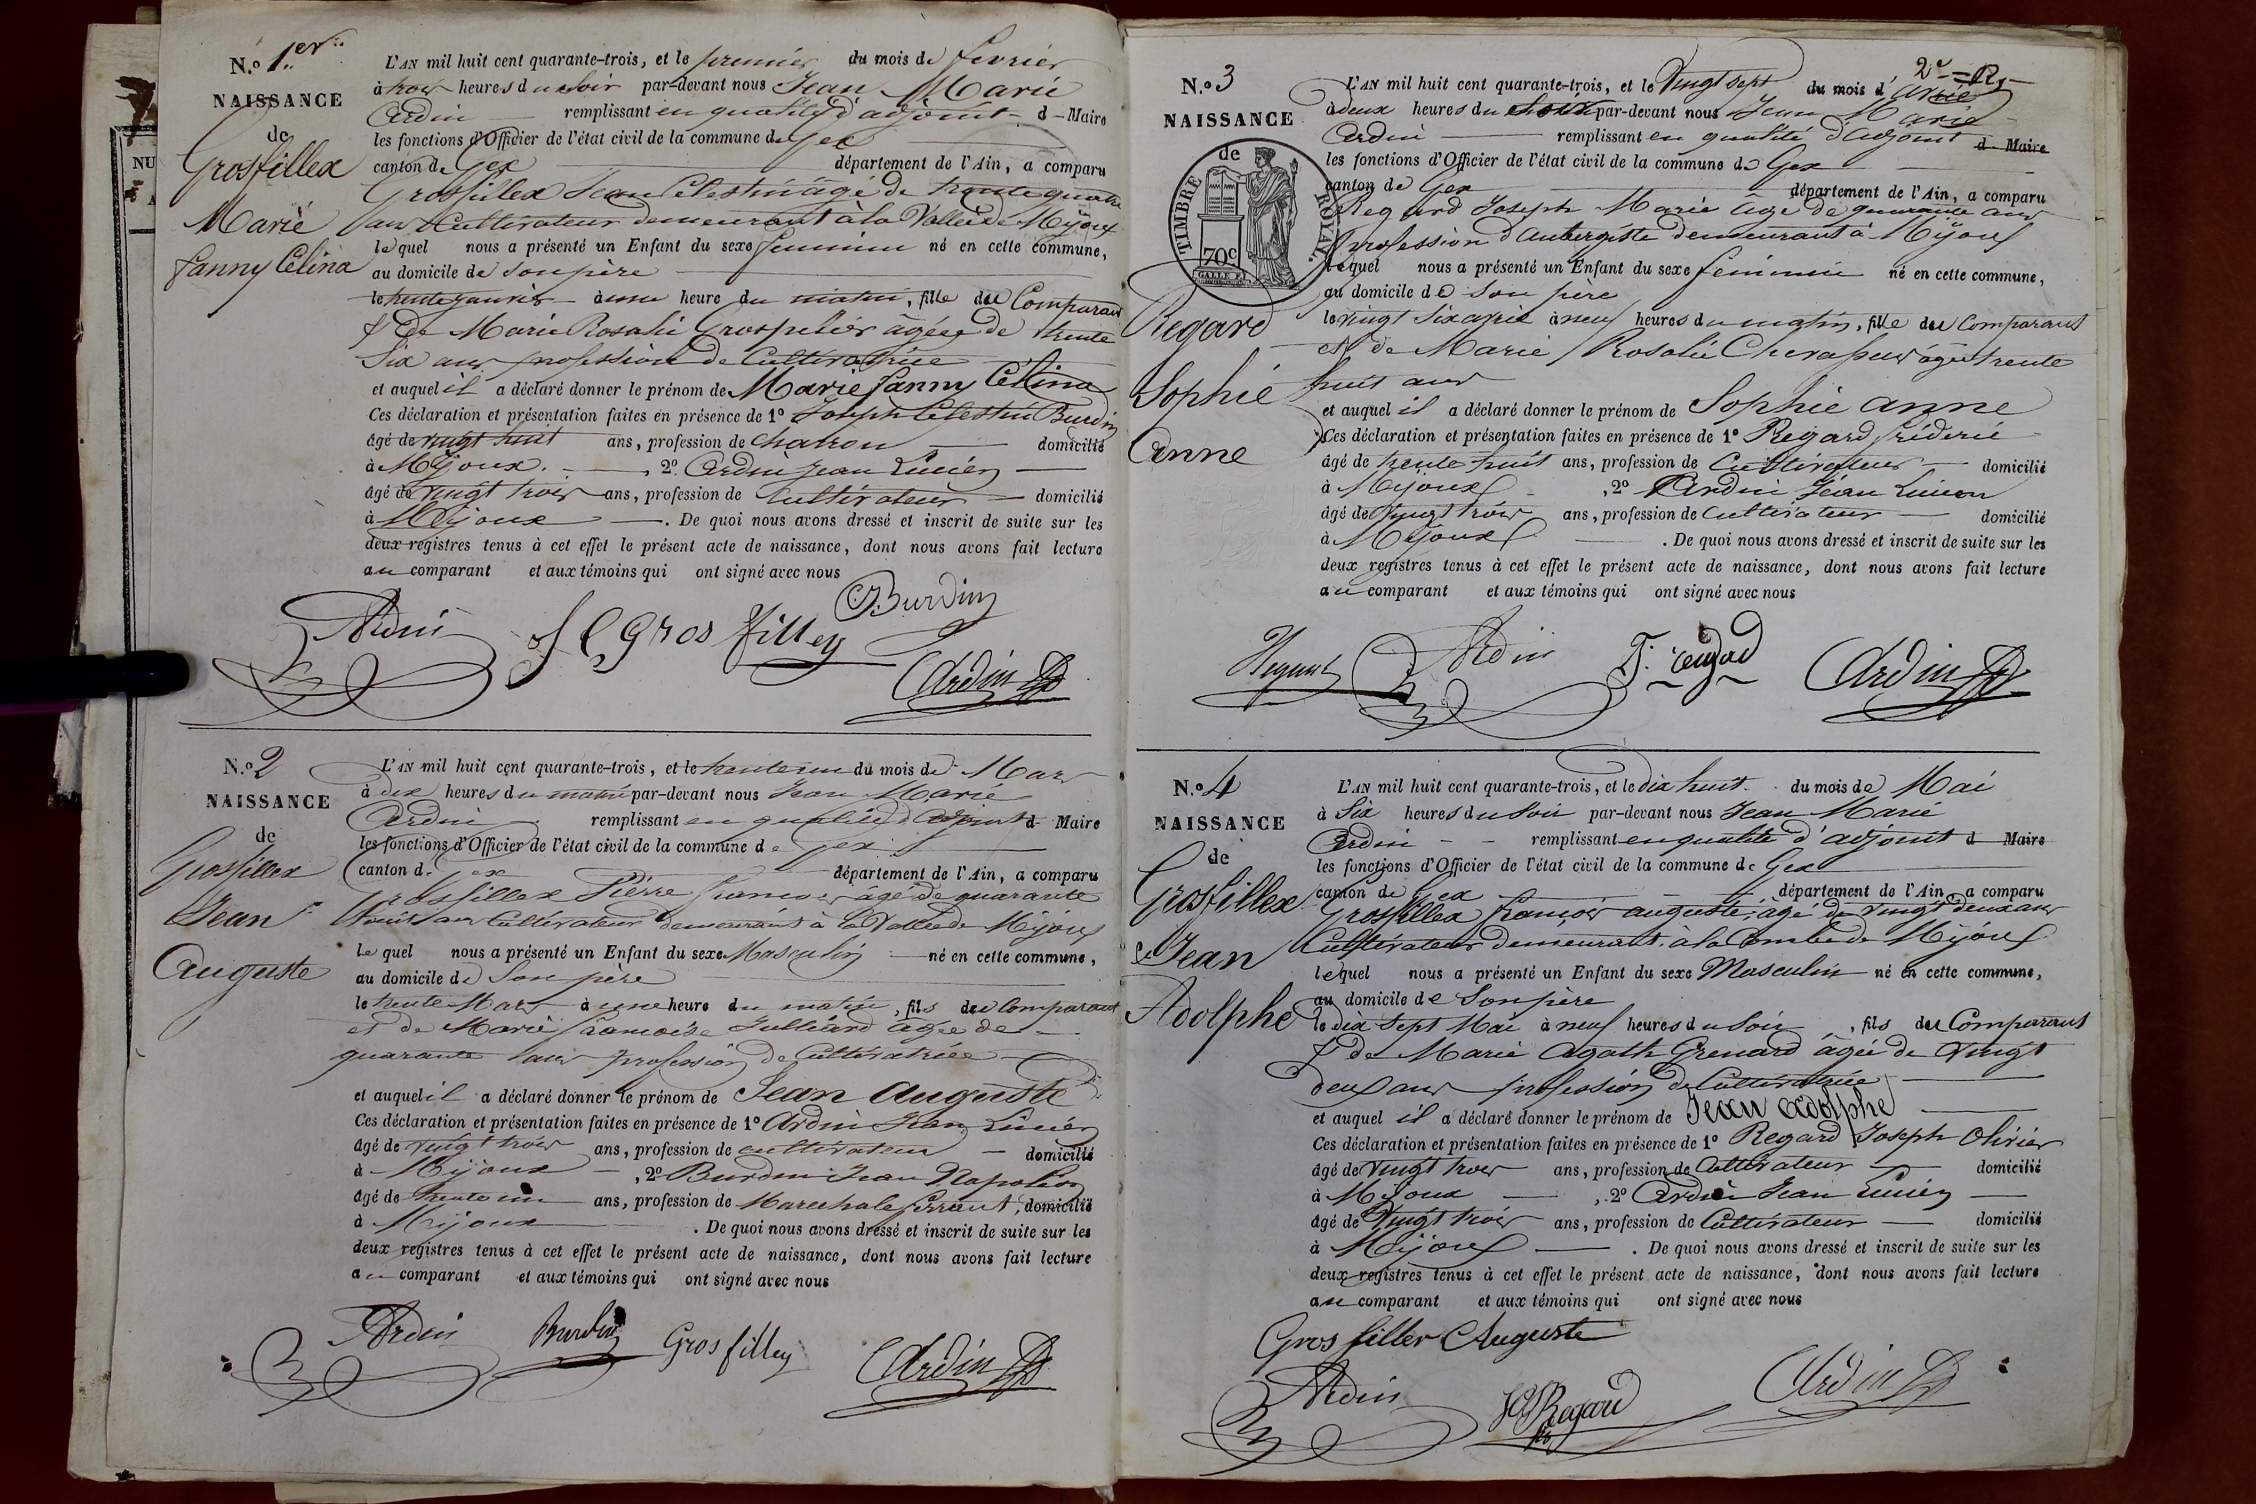 N.o 1.er
NAISSANCE
de
Grosfillex
Marie
fanny Célina
L'AN mil huit cent quarante-trois, et le premier du mois de fevrier
à trois heures du soir par-devant nous Jean Marie
Ardin remplissant en qualité d'adjoint d Maire
les fonctions d'Officier de l'état civil de la commune de Gex
canton de Gex département de l'Ain, a comparu
Grosfillex Jean Célestin âgé de trente quatre
ans Cultivateur demeurant à la Vallée de Mijoux
lequel nous a présenté un Enfant du sexe feminin né en cette commune,
au domicile de son père
le trente janvier à une heure du matin, fille du Comparant
& de Marie Rosalie Grospelier âgée de trente
Six ans profession de Cultivatrice
et auquel il a déclaré donner le prénom de Marie fanny Célina
Ces déclaration et présentation faites en présence de 1º Joseph Célestin Burdin
âgé de vingt huit ans, profession de charron domicilié
à Mijoux. , 2º Ardin Jean Lucien
âgé de vingt trois ans, profession de Cultivateur domicilié
à Mijoux . De quoi nous avons dressé et inscrit de suite sur les
deux registres tenus à cet effet le présent acte de naissance, dont nous avons fait lecture
au comparant et aux témoins qui ont signé avec nous
Burdin
Ardin J C Grosfilley
Ardin
N.o 2
NAISSANCE
de
Grosfillex
Jean
Auguste
L'AN mil huit cent quarante-trois, et le trente un du mois de Mars
à dix heures du matin par-devant nous Jean Marie
Ardin remplissant en qualité d'adjoint d Maire
les fonctions d'Officier de l'état civil de la commune de Gex
canton de Gex département de l'Ain, a comparu
Grosfillex Pierre françois âgé de quarante
huit ans Cultivateur demeurant à la Vallée de Mijoux
lequel nous a présenté un Enfant du sexe Masculin né en cette commune,
au domicile de Son père
le trente Mars à une heure du matin, fils du Comparant
et de Marie françoise Julliard âgée de
quarante ans profession de Cultivatrice
et auquel il a déclaré donner le prénom de Jean Auguste
Ces déclaration et présentation faites en présence de 1º Ardin Jean Lucien
âgé de vingt trois ans, profession de cultivateur domicilié
à Mijoux , 2º Burdin Jean Napoléon
âgé de trente un ans, profession de Marechale ferrant, domicilié
à Mijoux . De quoi nous avons dressé et inscrit de suite sur les
deux registres tenus à cet effet le présent acte de naissance, dont nous avons fait lecture
au comparant et aux témoins qui ont signé avec nous
Ardin Burdin Grosfilley Ardin
2e
N.o 3
NAISSANCE
de
TIMBRE ROYAL.
70c
Regard
Sophie
Anne
L'AN mil huit cent quarante-trois, et le Vingt sept du mois d'avril
à deux heures du soir par-devant nous Jean Marie
Ardin remplissant en qualité d'adjoint d Maire
les fonctions d'Officier de l'état civil de la commune de Gex
canton de Gex département de l'Ain, a comparu
Regard Joseph Marie âgé de quarante ans
profession d'Aubergiste demeurant à Mijoux
lequel nous a présenté un Enfant du sexe feminin né en cette commune,
au domicile de son père
le vingt six avril à neuf heures du matin, fille du Comparant
et de Marie Rosalie âgée trente
huit ans
et auquel il a déclaré donner le prénom de Sophie anne
Ces déclaration et présentation faites en présence de 1º Regard fréderic
âgé de trente huit ans, profession de Cultivateur domicilié
à Mijoux , 2º Ardin Jean Lucien
âgé de Vingt trois ans, profession de Cultivateur domicilié
à Mijoux . De quoi nous avons dressé et inscrit de suite sur les
deux registres tenus à cet effet le présent acte de naissance, dont nous avons fait lecture
au comparant et aux témoins qui ont signé avec nous
Regard Ardin F. regard Ardin
N.o 4
NAISSANCE
de
Grosfillex
Jean
Adolphe
L'AN mil huit cent quarante-trois, et le dix huit du mois de Mai
à Six heures du Soir par-devant nous Jean Marie
Ardin remplissant en qualité d'adjoint d Maire
les fonctions d'Officier de l'état civil de la commune de Gex
canton de Gex département de l'Ain, a comparu
Grosfillex françois auguste, âgé de vingt deux ans
Cultivateur demeurant à la Combe de Mijoux
lequel nous a présenté un Enfant du sexe Masculin né en cette commune,
au domicile de Son père
le dix sept Mai à neuf heures du Soir, fils du Comparant
& de Marie Agath Grenard âgée de Vingt
deux ans profession de Cultivatrice
et auquel il a déclaré donner le prénom de Jean Adolphe
Ces déclaration et présentation faites en présence de 1º Regard Joseph Olivier
âgé de Vingt trois ans, profession de Cultivateur domicilié
à Mijoux , 2º Ardin Jean Lucien
âgé de Vingt trois ans, profession de Cultivateur domicilié
à Mijoux . De quoi nous avons dressé et inscrit de suite sur les
deux registres tenus à cet effet le présent acte de naissance, dont nous avons fait lecture
au comparant et aux témoins qui ont signé avec nous
Grosfiller Auguste
Ardin Regard Ardin